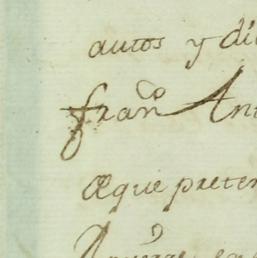 autos y di
fran.co Ant
æque preten